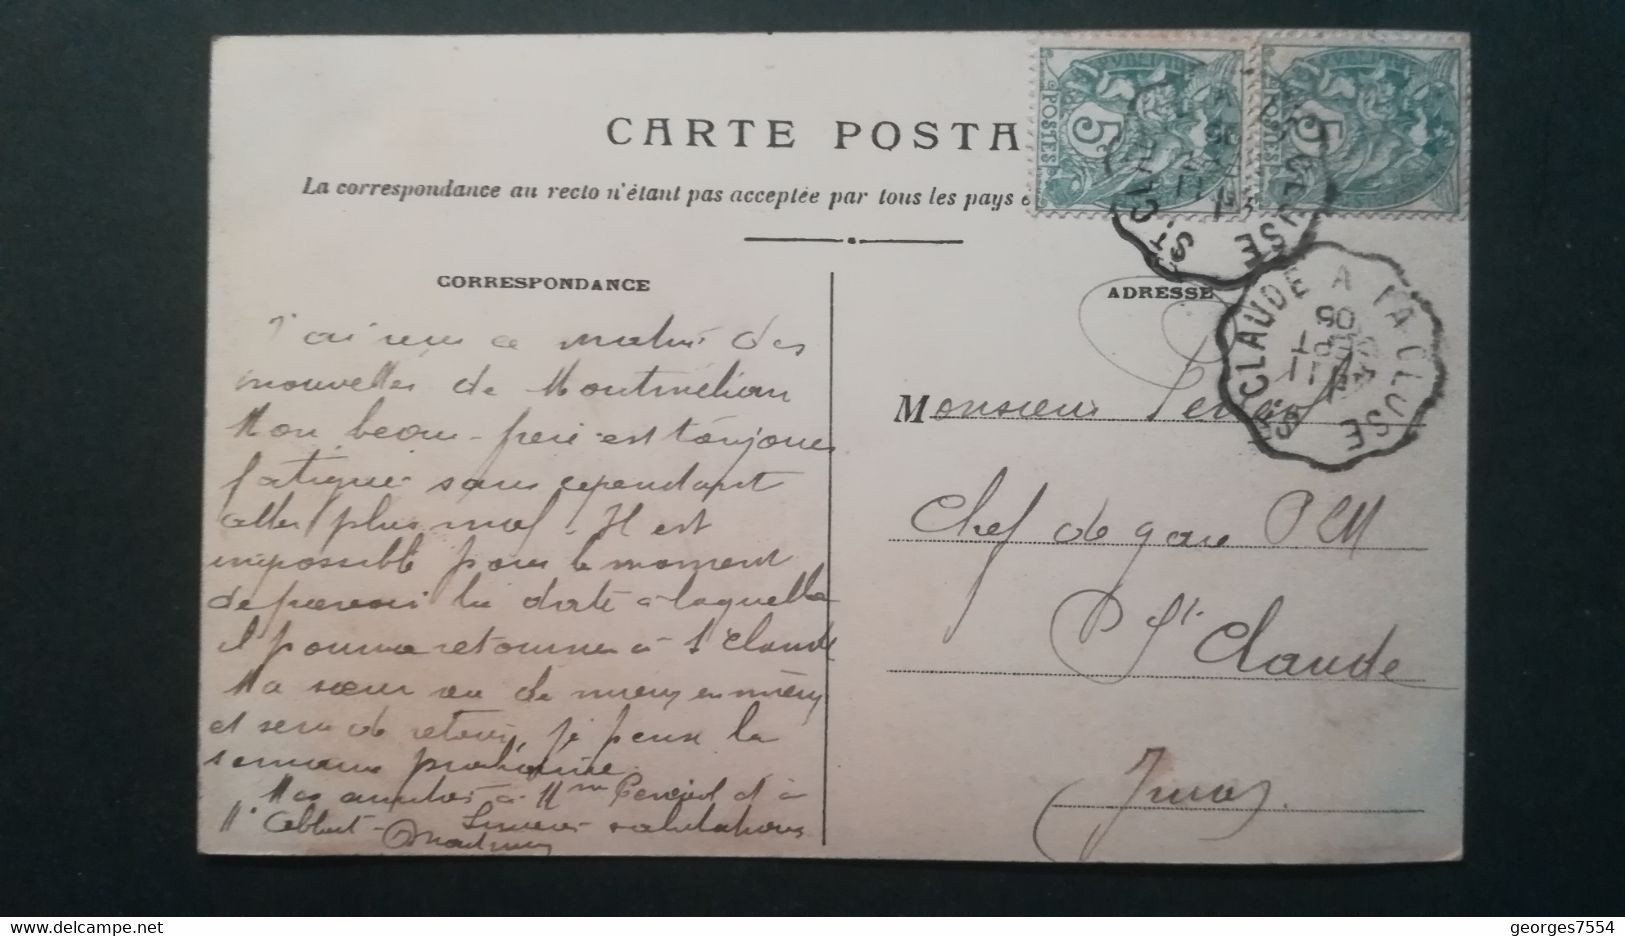 CARTE POSTA
La correspondance au recto n'étant pas acceptée par tous les pays
POSTES 5
POSTES 5
CORRESPONDANCE
ADRESSE
ST CLAUDE A LA CLUSE
ST CLAUDE A LA CLUSE
06
J'ai reçu ce matin des
nouvelles de Montmélian
Mon beau-père est toujours
fatigué sans cependant
aller plus mal. Il est
impossible pour le moment
de prévoir la date à laquelle
il pourra retourner à St Claude
Ma sœur va de mieux en mieux
et sera de retour, je pense la
semaine prochaine.
Mes amitiés à Mme et à
Mr salutations
Monsieur
Chef de gare PLM
St Claude
Jura
georges7554